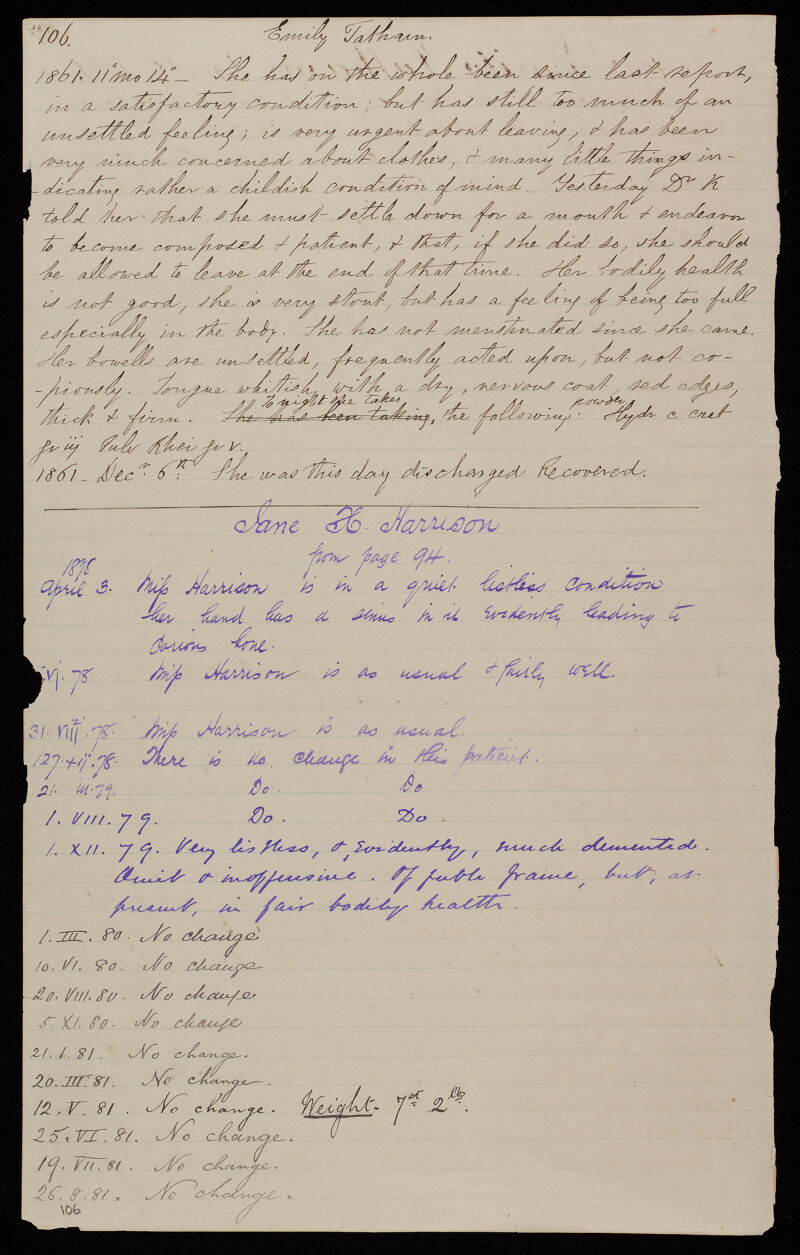 106.
Emily Tatham.
1861. 11° mo 14° - She has on the whole been since last report,
in a satisfactory condition; but has still too much of an
unsettled feeling; is very urgent about leaving, & has been
very much concerned about clothes, & many little things in-
-dicating rather a childish condition of mind. Yesterday Dr K
told her that she must settle down for a month & endeavor
to become composed & patient, & that, if she did so, she should
be allowed to leave at the end of that time. Her bodily health
is not good, she is very stout, but has a feeling of being too full
especially in the body. She has not menstruated since she came.
Her bowells are unsettled, frequently acted upon, but not co-
-piously. Tongue whitish, with a dry, nervous coat, red edges,
To night she takes powder
thick & firm. She has been taking, the following: Hydr c cret
gr iij Pulv Rhei gr v.
1861 - Decr. 6th. She was this day discharged Recovered.
Jane H. Harrison
from page 94.
1878
April 3. Miss Harrison is in a quiet listless condition
her hand has a sinus in it evidently leading to
carious bone.
VI. 78. Miss Harrison is as usual & fairly well.
31. VIII. 78. Miss Harrison is as usual.
27. XII. 78. There is no change in this patient.
21. III. 79. Do. Do
1. VIII. 79. Do. Do.
1. XII. 79. Very listless, &, evidently, much demented.
Quiet & inoffensive. Of feeble frame, but, at
present, in fair bodily health.
1. III. 80. No change
10. VI. 80. No change
20. VIII. 80. No change
5. XI. 80. No change
21. 1. 81. No change.
20. III. 81. No change.
12. V. 81. No change. Weight - 7st 2lbs.
25. VI. 81. No change.
19. VII. 81. No change.
26. 8. 81. No change.
106